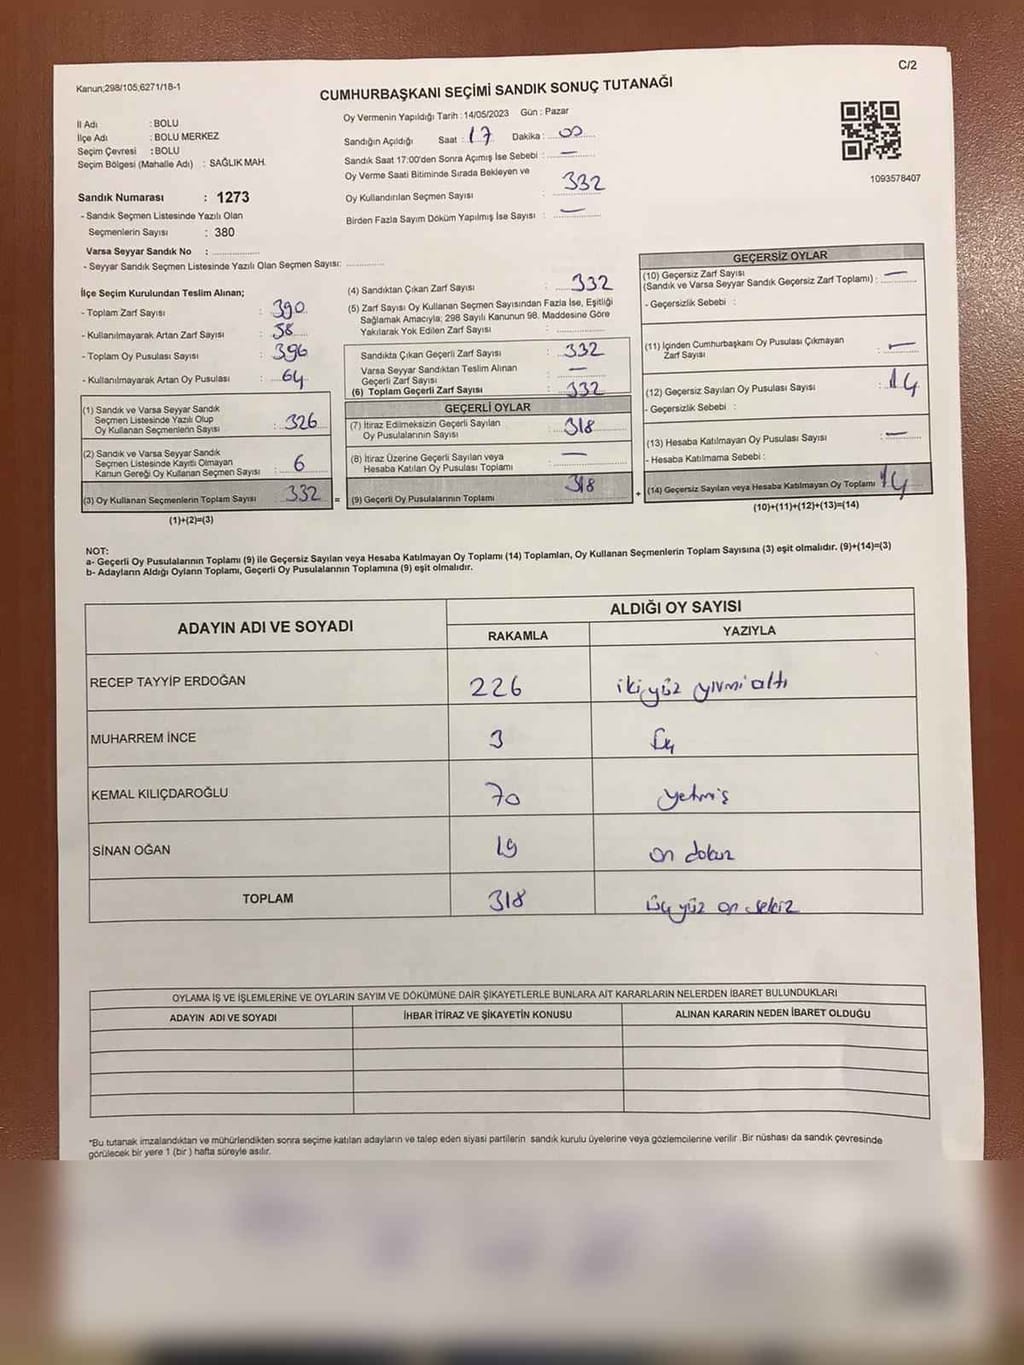 C/2
Kanun;298/105;6271/18-1
CUMHURBAŞKANI SEÇİMİ SANDIK SONUÇ TUTANAĞI
İl Adı : BOLU
İlçe Adı : BOLU MERKEZ
Seçim Çevresi : BOLU
Seçim Bölgesi (Mahalle Adı) : SAĞLIK MAH.
Sandık Numarası : 1273
- Sandık Seçmen Listesinde Yazılı Olan
Seçmenlerin Sayısı : 380
Varsa Seyyar Sandık No :
- Seyyar Sandık Seçmen Listesinde Yazılı Olan Seçmen Sayısı:
Oy Vermenin Yapıldığı Tarih : 14/05/2023 Gün : Pazar
Sandığın Açıldığı Saat : 17 Dakika : 00
Sandık Saat 17:00'den Sonra Açımış İse Sebebi : —
Oy Verme Saati Bitiminde Sırada Bekleyen ve
Oy Kullandırılan Seçmen Sayısı : 332
Birden Fazla Sayım Döküm Yapılmış İse Sayısı : —
1093578407
İlçe Seçim Kurulundan Teslim Alınan;
- Toplam Zarf Sayısı : 390
- Kullanılmayarak Artan Zarf Sayısı : 58
- Toplam Oy Pusulası Sayısı : 396
- Kullanılmayarak Artan Oy Pusulası : 64
(1) Sandık ve Varsa Seyyar Sandık
Seçmen Listesinde Yazılı Olup
Oy Kullanan Seçmenlerin Sayısı : 326
(2) Sandık ve Varsa Seyyar Sandık
Seçmen Listesinde Kayıtlı Olmayan
Kanun Gereği Oy Kullanan Seçmen Sayısı : 6
(3) Oy Kullanan Seçmenlerin Toplam Sayısı 332 =
(1)+(2)=(3)
(4) Sandıktan Çıkan Zarf Sayısı : 332
(5) Zarf Sayısı Oy Kullanan Seçmen Sayısından Fazla İse, Eşitliği
Sağlamak Amacıyla; 298 Sayılı Kanunun 98. Maddesine Göre
Yakılarak Yok Edilen Zarf Sayısı :
Sandıkta Çıkan Geçerli Zarf Sayısı : 332
Varsa Seyyar Sandıktan Teslim Alınan
Geçerli Zarf Sayısı : —
(6) Toplam Geçerli Zarf Sayısı : 332
GEÇERLİ OYLAR
(7) İtiraz Edilmeksizin Geçerli Sayılan
Oy Pusulalarının Sayısı : 318
(8) İtiraz Üzerine Geçerli Sayılan veya
Hesaba Katılan Oy Pusulası Toplamı : —
(9) Geçerli Oy Pusulalarının Toplamı : 318 +
GEÇERSİZ OYLAR
(10) Geçersiz Zarf Sayısı
(Sandık ve Varsa Seyyar Sandık Geçersiz Zarf Toplamı) : —
- Geçersizlik Sebebi :
(11) İçinden Cumhurbaşkanı Oy Pusulası Çıkmayan
Zarf Sayısı : —
(12) Geçersiz Sayılan Oy Pusulası Sayısı : 14
- Geçersizlik Sebebi :
(13) Hesaba Katılmayan Oy Pusulası Sayısı : —
- Hesaba Katılmama Sebebi :
(14) Geçersiz Sayılan veya Hesaba Katılmayan Oy Toplamı 14
(10)+(11)+(12)+(13)=(14)
NOT:
a- Geçerli Oy Pusulalarının Toplamı (9) ile Geçersiz Sayılan veya Hesaba Katılmayan Oy Toplamı (14) Toplamları, Oy Kullanan Seçmenlerin Toplam Sayısına (3) eşit olmalıdır. (9)+(14)=(3)
b- Adayların Aldığı Oyların Toplamı, Geçerli Oy Pusulalarının Toplamına (9) eşit olmalıdır.
ADAYIN ADI VE SOYADI ALDIĞI OY SAYISI
RAKAMLA YAZIYLA
RECEP TAYYİP ERDOĞAN 226 iki yüz yirmi altı
MUHARREM İNCE 3 üç
KEMAL KILIÇDAROĞLU 70 yetmiş
SİNAN OĞAN 19 on dokuz
TOPLAM 318 üç yüz on sekiz
OYLAMA İŞ VE İŞLEMLERİNE VE OYLARIN SAYIM VE DÖKÜMÜNE DAİR ŞİKAYETLERLE BUNLARA AİT KARARLARIN NELERDEN İBARET BULUNDUKLARI
ADAYIN ADI VE SOYADI İHBAR İTİRAZ VE ŞİKAYETİN KONUSU ALINAN KARARIN NEDEN İBARET OLDUĞU
*Bu tutanak imzalandıktan ve mühürlendikten sonra seçime katılan adayların ve talep eden siyasi partilerin sandık kurulu üyelerine veya gözlemcilerine verilir. Bir nüshası da sandık çevresinde
görülecek bir yere 1 (bir) hafta süreyle asılır.